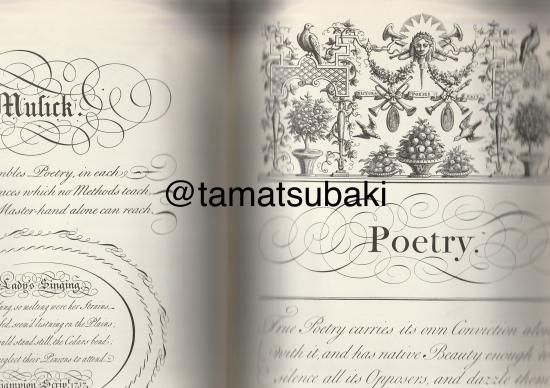 Musick.
mbles Poetry, in each
nces which no Methods teach
Master-hand alone can reach.
Lady's Singing
ng, so melting were her Strains,
ed, seem'd list'ning on the Plains;
uld stand still, the Cedars bend,
neglect their Pinions to attend.
hampion Scrip.
@tamatsubaki
POESIS
Poetry.
True Poetry carries its own Conviction alon
with it, and has native Beauty enough to
silence all its Opposers, and dazzle them